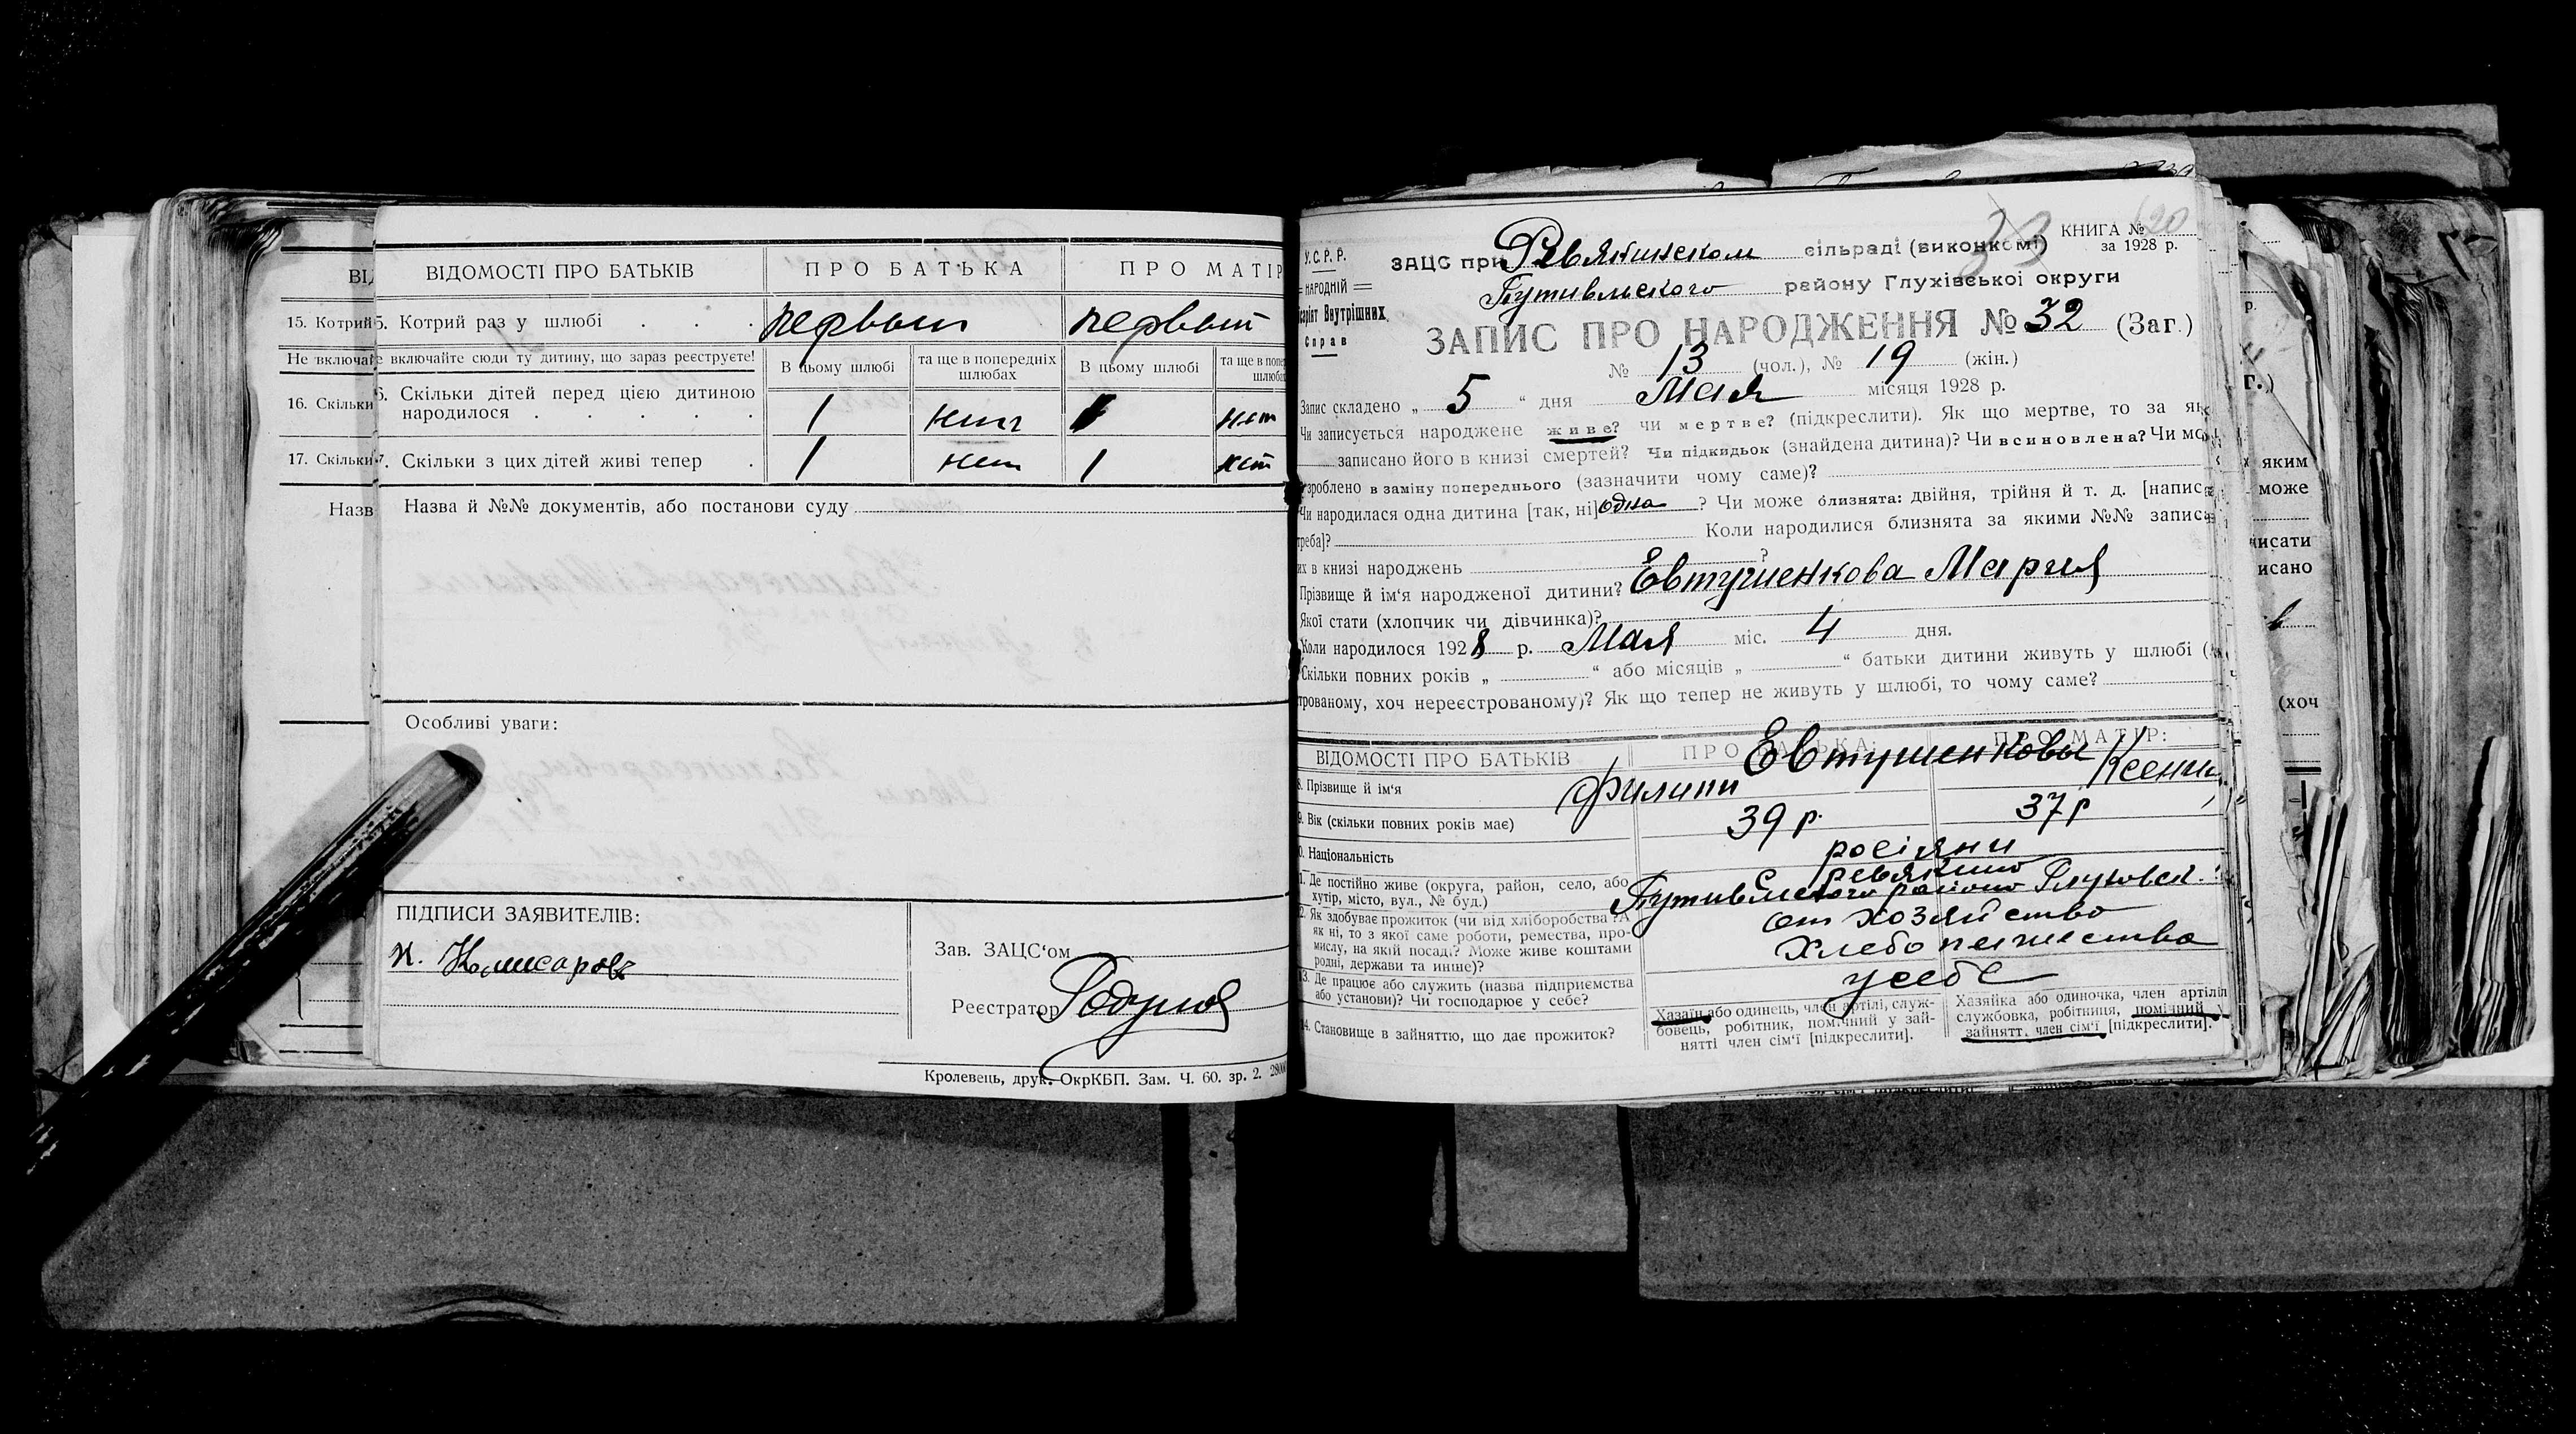 ВІДОМОСТІ ПРО БАТЬКІВ
ПРО БАТЬКА
ПРО МАТІР
15. Котрий
5. Котрий раз у шлюбі
первый
первый
Не включай
е включайте сюди ту дитину, що зараз реєструєте!
В цьому шлюбі
та ще в попередніх шлюбах
В цьому шлюбі
та ще в попе
шлюбах
16. Скільки
6. Скільки дітей перед цією дитиною
народилося
1
нет
1
нет
17. Скільки
7. Скільки з цих дітей живі тепер
1
нет
1
нет
Назв
Назва й №№ документів, або постанови суду
Особливі уваги:
ПІДПИСИ ЗАЯВИТЕЛІВ:
Н. Комисаров
Зав. ЗАЦС‘ом
Реєстратор
Кролевець, друк. ОкрКБП. Зам. Ч. 60. зр. 2.
У.С.Р.Р.
НАРОДНІЙ
Внутрішних
Справ
КНИГА № 20
за 1928 р.
ЗАЦС при Ревякинском сільраді (виконкомі)
Путивльского району Глухівської округи
ЗАПИС ПРО НАРОДЖЕННЯ № 32 (Заг.)
№ 13 (чол.), № 19 (жін.)
Запис складено „ 5 “ дня Мая місяця 1928 р.
Чи записується народжене живе? чи мертве? (підкреслити). Як що мертве, то за як
записано його в книзі смертей? Чи підкидьок (знайдена дитина)? Чи всиновлена? Чи мо
зроблено в заміну попереднього (зазначити чому саме)?
Чи народилася одна дитина [так, ні] одна ? Чи може близнята: двійня, трійня й т. д. [напис
треба]? Коли народилися близнята за якими №№ запис
их в книзі народжень ?
Прізвище й ім‘я народженої дитини? Евтушенкова Мария
Якої стати (хлопчик чи дівчинка)?
Коли народилося 1928 р. Мая міс. 4 дня.
Скільки повних років „ “ або місяців „ “ батьки дитини живуть у шлюбі (
трованому, хоч нереєстрованому)? Як що тепер не живуть у шлюбі, то чому саме?
ВІДОМОСТІ ПРО БАТЬКІВ
ПРО БАТЬКА:
ПРО МАТІР:
Евтушенковы
8. Прізвище й ім‘я
Филипп
Ксения
9. Вік (скільки повних років має)
39 р.
37 р
0. Національність
росіяни
1. Де постійно живе (округа, район, село, або
хутір, місто, вул., № буд.)
с. Ревякино
Путивльского района Глуховск.
2. Як здобуває прожиток (чи від хліборобства? А
як ні, то з якої саме роботи, ремества, про-
мислу, на якій посаді? Може живе коштами
родні, держави та инше)?
от хозяйство
хлебопашества
13. Де працює або служить (назва підприємства
або установи)? Чи господарює у себе?
у себе
14. Становище в зайняттю, що дає прожиток?
Хазяїн або одинець, член артілі, служ-
бовець, робітник, помічний у зай-
нятті член сім‘ї [підкреслити].
Хазяйка або одиночка, член артілі
службовка, робітниця, помічний у
зайнятт. член сім‘ї [підкреслити].
яким
може
исати
исано
(хоч